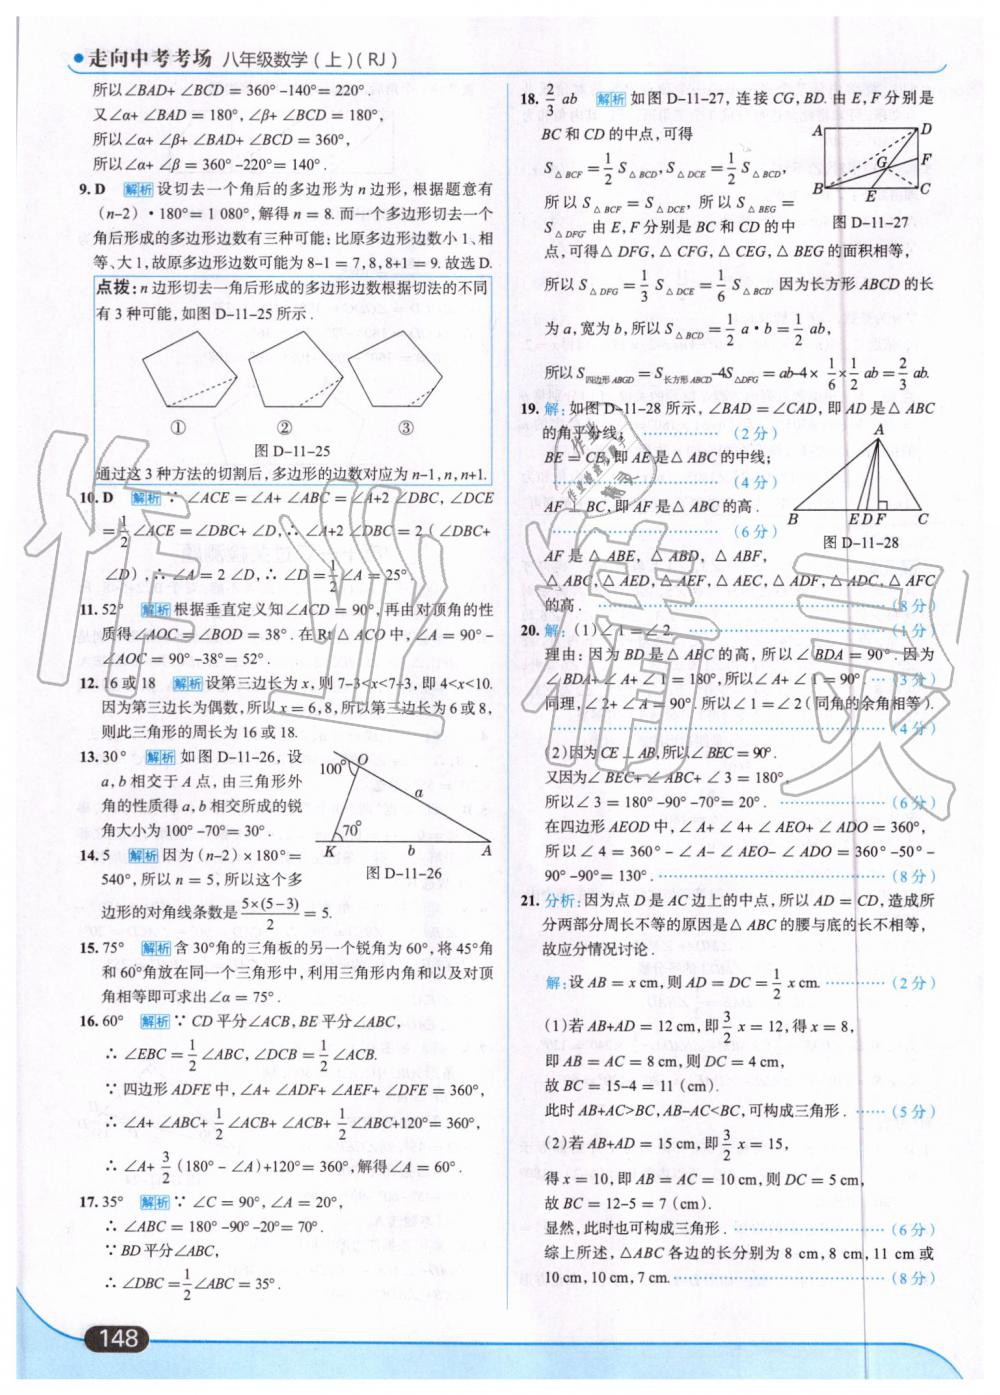 走向中考考场 八年级数学(上)(RJ)
所以∠BAD+∠BCD=360°-140°=220°.
又∠α+∠BAD=180°,∠β+∠BCD=180°,
所以∠α+∠β+∠BAD+∠BCD=360°,
所以∠α+∠β=360°-220°=140°.
9.D 解析 设切去一个角后的多边形为n边形,根据题意有
(n-2)·180°=1 080°,解得n=8.而一个多边形切去一个
角后形成的多边形边数有三种可能:比原多边形边数小1、相
等、大1,故原多边形边数可能为8-1=7,8,8+1=9.故选D.
点拨:n边形切去一角后形成的多边形边数根据切法的不同
有3种可能,如图D-11-25所示.
① ② ③
图D-11-25
通过这3种方法的切割后,多边形的边数对应为n-1,n,n+1.
10.D 解析 ∵∠ACE=∠A+∠ABC=∠A+2∠DBC,∠DCE
=1/2∠ACE=∠DBC+∠D,∴∠A+2∠DBC=2(∠DBC+
∠D),∴∠A=2∠D,∴∠D=1/2∠A=25°.
11.52° 解析 根据垂直定义知∠ACD=90°,再由对顶角的性
质得∠AOC=∠BOD=38°.在Rt△ACO中,∠A=90°-
∠AOC=90°-38°=52°.
12.16或18 解析 设第三边长为x,则7-3<x<7+3,即4<x<10.
因为第三边长为偶数,所以x=6,8,所以第三边长为6或8,
则此三角形的周长为16或18.
13.30° 解析 如图D-11-26,设
a,b相交于A点,由三角形外
角的性质得a,b相交所成的锐
角大小为100°-70°=30°.
100° O
a
70°
K b A
图D-11-26
14.5 解析 因为(n-2)×180°=
540°,所以n=5,所以这个多
边形的对角线条数是5×(5-3)/2=5.
15.75° 解析 含30°角的三角板的另一个锐角为60°,将45°角
和60°角放在同一个三角形中,利用三角形内角和以及对顶
角相等即可求出∠α=75°.
16.60° 解析 ∵CD平分∠ACB,BE平分∠ABC,
∴∠EBC=1/2∠ABC,∠DCB=1/2∠ACB.
∵四边形ADFE中,∠A+∠ADF+∠AEF+∠DFE=360°,
∴∠A+∠ABC+1/2∠ACB+∠ACB+1/2∠ABC+120°=360°,
∴∠A+3/2(180°-∠A)+120°=360°,解得∠A=60°.
17.35° 解析 ∵∠C=90°,∠A=20°,
∴∠ABC=180°-90°-20°=70°.
∵BD平分∠ABC,
∴∠DBC=1/2∠ABC=35°.
18.2/3ab 解析 如图D-11-27,连接CG,BD.由E,F分别是
BC和CD的中点,可得
S△BCF=1/2S△BCD,S△DCE=1/2S△BCD,
所以S△BCF=S△DCE,所以S△BEG=
S△DFG.由E,F分别是BC和CD的中
A D
F
G
B E C
图D-11-27
点,可得△DFG,△CFG,△CEG,△BEG的面积相等,
所以S△DFG=1/3S△DCE=1/6S△BCD.因为长方形ABCD的长
为a,宽为b,所以S△BCD=1/2a·b=1/2ab,
所以S四边形ABGD=S长方形ABCD-4S△DFG=ab-4×1/6×1/2ab=2/3ab.
19.解:如图D-11-28所示,∠BAD=∠CAD,即AD是△ABC
的角平分线; ……………(2分)
BE=CE,即AE是△ABC的中线;
……………(4分)
AF⊥BC,即AF是△ABC的高.
……………(6分)
A
B E D F C
图D-11-28
AF是△ABE,△ABD,△ABF,
△ABC,△AED,△AEF,△AEC,△ADF,△ADC,△AFC
的高. ……………(8分)
20.解:(1)∠1=∠2. ……………(1分)
理由:因为BD是△ABC的高,所以∠BDA=90°.因为
∠BDA+∠A+∠1=180°,所以∠A+∠1=90°. …(3分)
同理,∠2+∠A=90°.所以∠1=∠2(同角的余角相等).
……………(4分)
(2)因为CE⊥AB,所以∠BEC=90°.
又因为∠BEC+∠ABC+∠3=180°,
所以∠3=180°-90°-70°=20°. ……………(6分)
在四边形AEOD中,∠A+∠4+∠AEO+∠ADO=360°,
所以∠4=360°-∠A-∠AEO-∠ADO=360°-50°-
90°-90°=130°. ……………(8分)
21.分析:因为点D是AC边上的中点,所以AD=CD,造成所
分两部分周长不等的原因是△ABC的腰与底的长不相等,
故应分情况讨论.
解:设AB=x cm,则AD=DC=1/2x cm. ……………(2分)
(1)若AB+AD=12 cm,即3/2x=12,得x=8,
即AB=AC=8 cm,则DC=4 cm,
故BC=15-4=11(cm).
此时AB+AC>BC,AB-AC<BC,可构成三角形. ……(5分)
(2)若AB+AD=15 cm,即3/2x=15,
得x=10,即AB=AC=10 cm,则DC=5 cm,
故BC=12-5=7(cm).
显然,此时也可构成三角形. ……………(6分)
综上所述,△ABC各边的长分别为8 cm,8 cm,11 cm或
10 cm,10 cm,7 cm. ……………(8分)
148
作业精灵